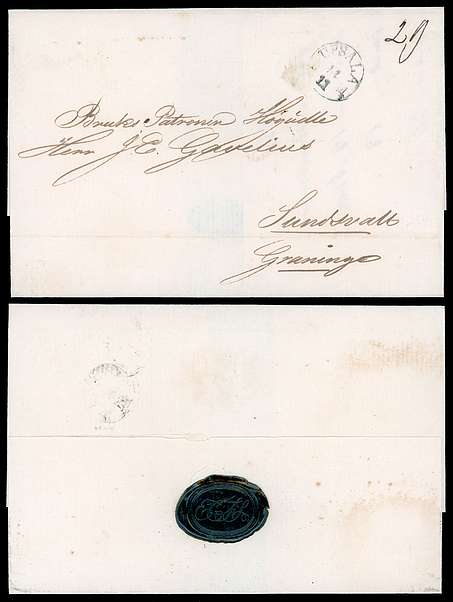 UPSALA
Bruks Patronen Högädle
Herr J. E. Gavelius
Sundsvall
Graninge